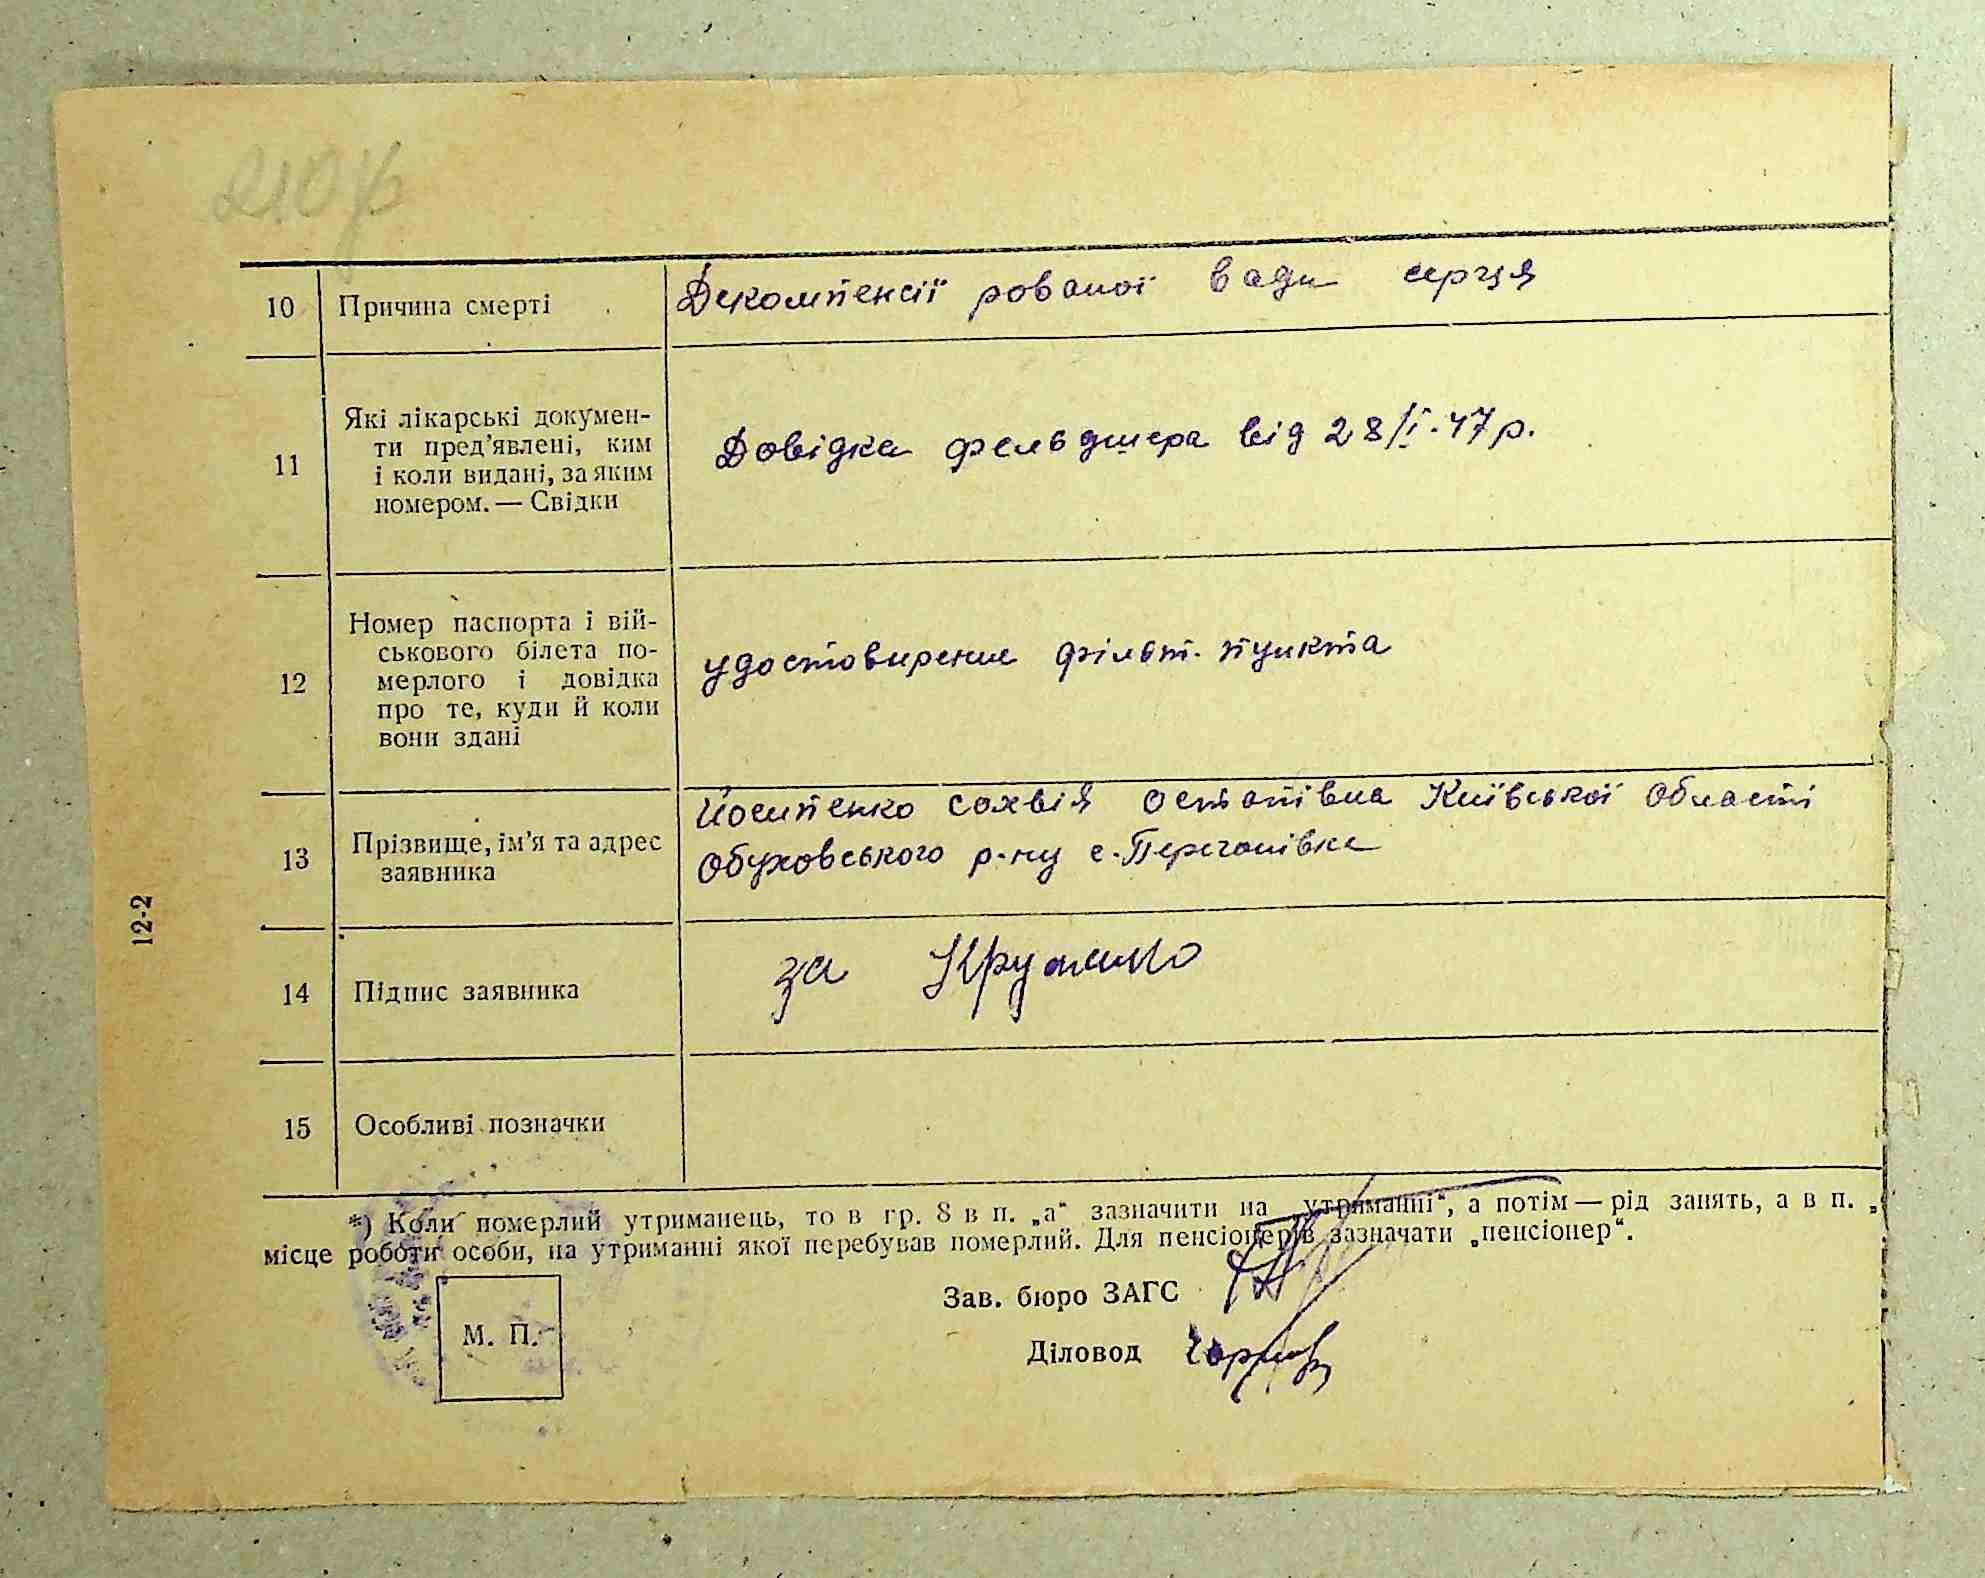 10 Причина смерті Декомпенсії рованої вади серця
11 Які лікарські докумен-
ти пред’явлені, ким
і коли видані, за яким
номером. — Свідки
Довідка фельдшера від 28/I.47 р.
12 Номер паспорта і вій-
ськового білета по-
мерлого і довідка
про те, куди й коли
вони здані
удостовирение фільт. пункта
13 Прізвище, ім’я та адрес
заявника
Йосипенко Сохвія Остапівна Київської Області
Обуховського р-ну с.
12-2
14 Підпис заявника за
15 Особливі позначки
*) Коли померлий утриманець, то в гр. 8 в п. „а“ зазначити на „утриманні“, а потім — рід занять, а в п. „
місце роботи особи, на утриманні якої перебував померлий. Для пенсіонерів зазначати „пенсіонер“.
Зав. бюро ЗАГС
М. П.
Діловод